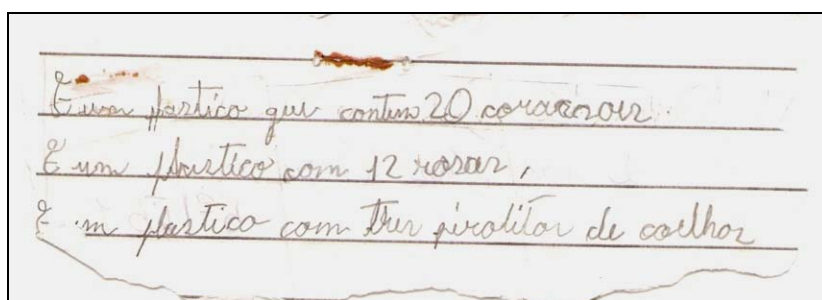 E um pastico que contem 20 coracsoes
E um plastico com 12 rosas,
E um plastico com tres pirolitos de coelhos